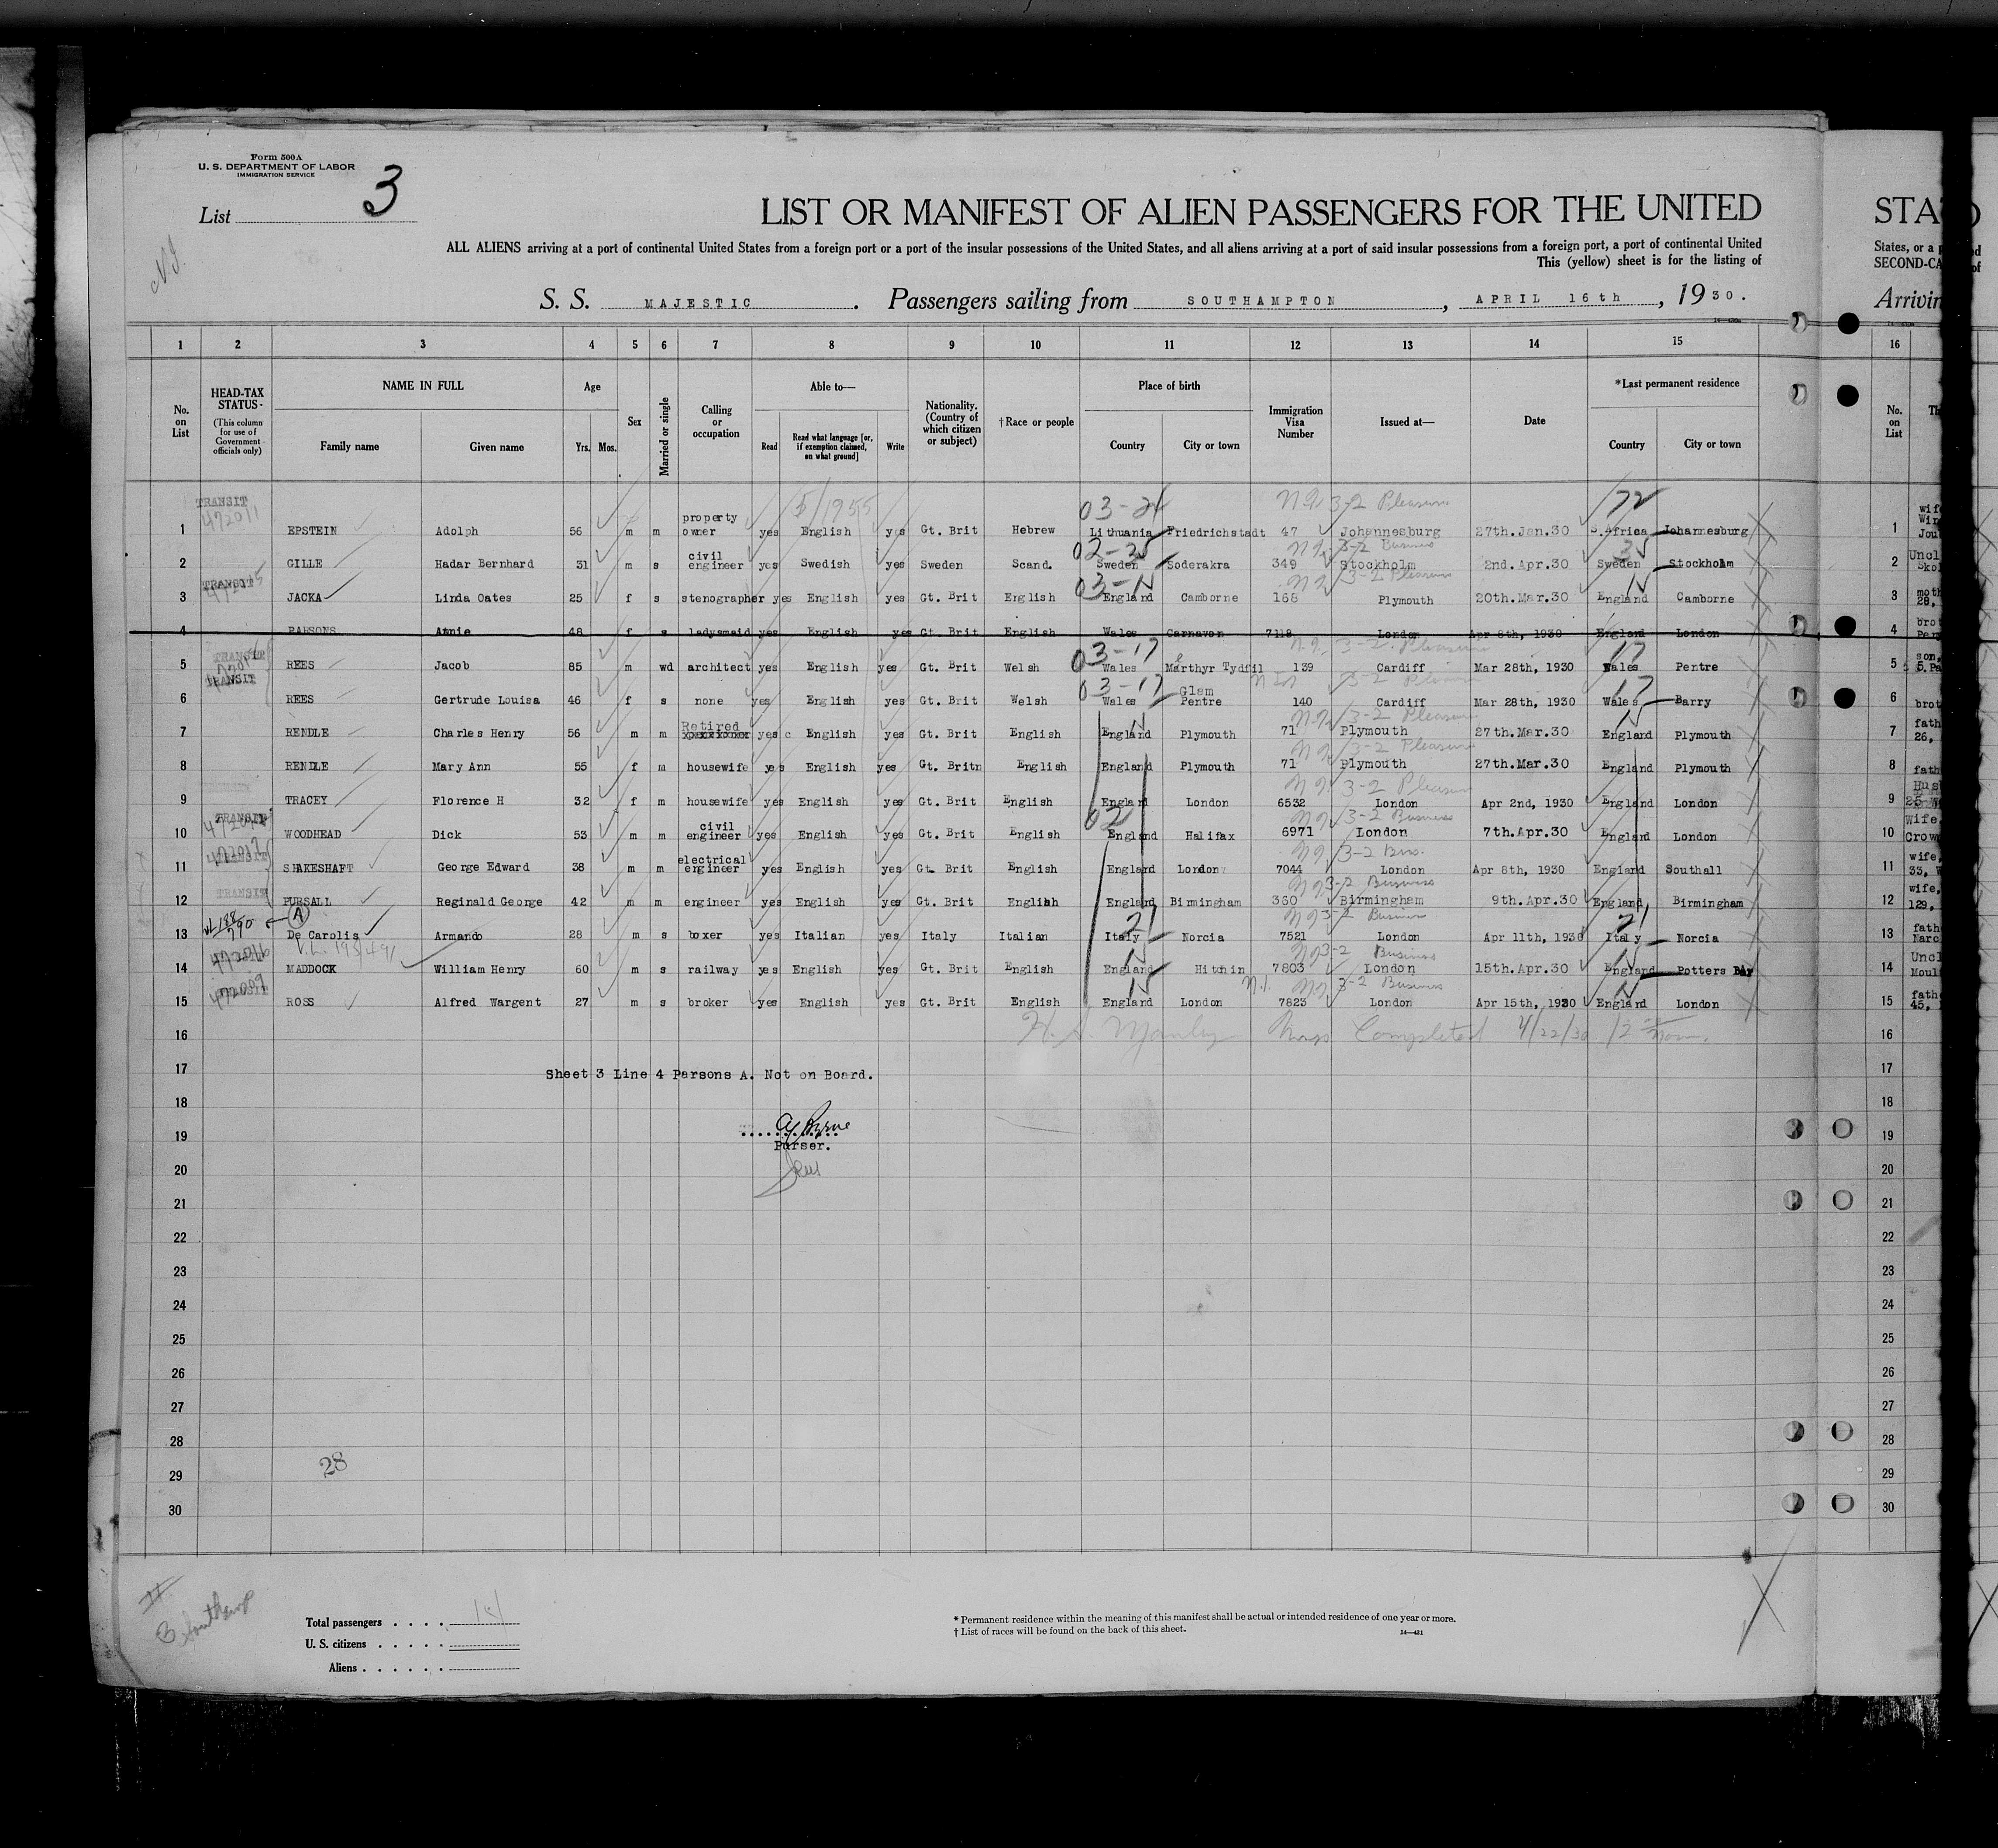 Form 500A
U. S. DEPARTMENT OF LABOR
IMMIGRATION SERVICE
List 3
LIST OR MANIFEST OF ALIEN PASSENGERS FOR THE UNITED
STA
ALL ALIENS arriving at a port of continental United States from a foreign port or a port of the insular possessions of the United States, and all aliens arriving at a port of said insular possessions from a foreign port, a port of continental United
States, or a
This (yellow) sheet is for the listing of
SECOND-CA
S. S. MAJESTIC. Passengers sailing from SOUTHAMPTON, APRIL 16th, 1930.
Arrivin
1 2 3 4 5 6 7 8 9 10 11 12 13 14 15 16
No. on List
HEAD-TAX STATUS
(This column for use of Government officials only)
NAME IN FULL
Family name Given name
Age
Yrs. Mos.
Sex
Married or single
Calling or occupation
Able to—
Read
Read what language [or, if exemption claimed, on what ground]
Write
Nationality. (Country of which citizen or subject)
†Race or people
Place of birth
Country City or town
Immigration Visa Number
Issued at—
Date
*Last permanent residence
Country City or town
No. on List
1 TRANSIT 472011 EPSTEIN Adolph 56 m m property owner yes English yes Gt. Brit Hebrew Lithuania Friedrichstadt 47 Johannesburg 27th.Jan.30 S.Africa Johannesburg 1
03-21 3-2 Pleasure
2 GILLE Hadar Bernhard 31 m s civil engineer yes Swedish yes Sweden Scand. Sweden Soderakra 349 Stockholm 2nd.Apr.30 Sweden Stockholm 2
02-25 3-2 Business
3 TRANSIT JACKA Linda Oates 25 f s stenographer yes English yes Gt. Brit English England Camborne 168 Plymouth 20th.Mar.30 England Camborne 3
3-2 Pleasure
4 PARSONS Annie 48 f s ladysmaid yes English yes Gt. Brit English Wales Carnavon 7118 London Apr 8th, 1930 England London 4
5 TRANSIT REES Jacob 85 m wd architect yes English yes Gt. Brit Welsh Wales Marthyr Tydfil 139 Cardiff Mar 28th, 1930 Wales Pentre 5
03-17 3-2 Pleasure
6 TRANSIT REES Gertrude Louisa 46 f s none yes English yes Gt. Brit Welsh Wales Glam Pentre 140 Cardiff Mar 28th, 1930 Wales Barry 6
03-17 3-2 Pleasure
7 RENDLE Charles Henry 56 m m Retired yes English yes Gt. Brit English England Plymouth 71 Plymouth 27th.Mar.30 England Plymouth 7
3-2 Pleasure
8 RENDLE Mary Ann 55 f m housewife yes English yes Gt. Britn English England Plymouth 71 Plymouth 27th.Mar.30 England Plymouth 8
3-2 Pleasure
9 TRACEY Florence H 32 f m housewife yes English yes Gt. Brit English England London 6532 London Apr 2nd, 1930 England London 9
3-2 Pleasure
10 TRANSIT WOODHEAD Dick 53 m m civil engineer yes English yes Gt. Brit English England Halifax 6971 London 7th.Apr.30 England London 10
02 3-2 Business
11 SHAKESHAFT George Edward 38 m m electrical engineer yes English yes Gt. Brit English England London 7044 London Apr 8th, 1930 England Southall 11
3-2 Bus.
12 TRANSIT PURSALL Reginald George 42 m m engineer yes English yes Gt. Brit English England Birmingham 360 Birmingham 9th.Apr.30 England Birmingham 12
3-2 Business
13 A De Carolis Armando 28 m s boxer yes Italian yes Italy Italian Italy Norcia 7521 London Apr 11th, 1930 Italy Norcia 13
3-2 Business
14 472016 MADDOCK William Henry 60 m s railway yes English yes Gt. Brit English England Hitchin 7803 London 15th.Apr.30 England Potters Bar 14
3-2 Business
15 472009 ROSS Alfred Wargent 27 m s broker yes English yes Gt. Brit English England London 7823 London Apr 15th, 1930 England London 15
3-2 Business
16 Completed 4/22/30 12 Noon. 16
17 Sheet 3 Line 4 Parsons A. Not on Board. 17
18 18
19 Purser. 19
20 20
21 21
22 22
23 23
24 24
25 25
26 26
27 27
28 28
28
29 29
30 30
Total passengers
U. S. citizens
Aliens
* Permanent residence within the meaning of this manifest shall be actual or intended residence of one year or more.
† List of races will be found on the back of this sheet.
14—431